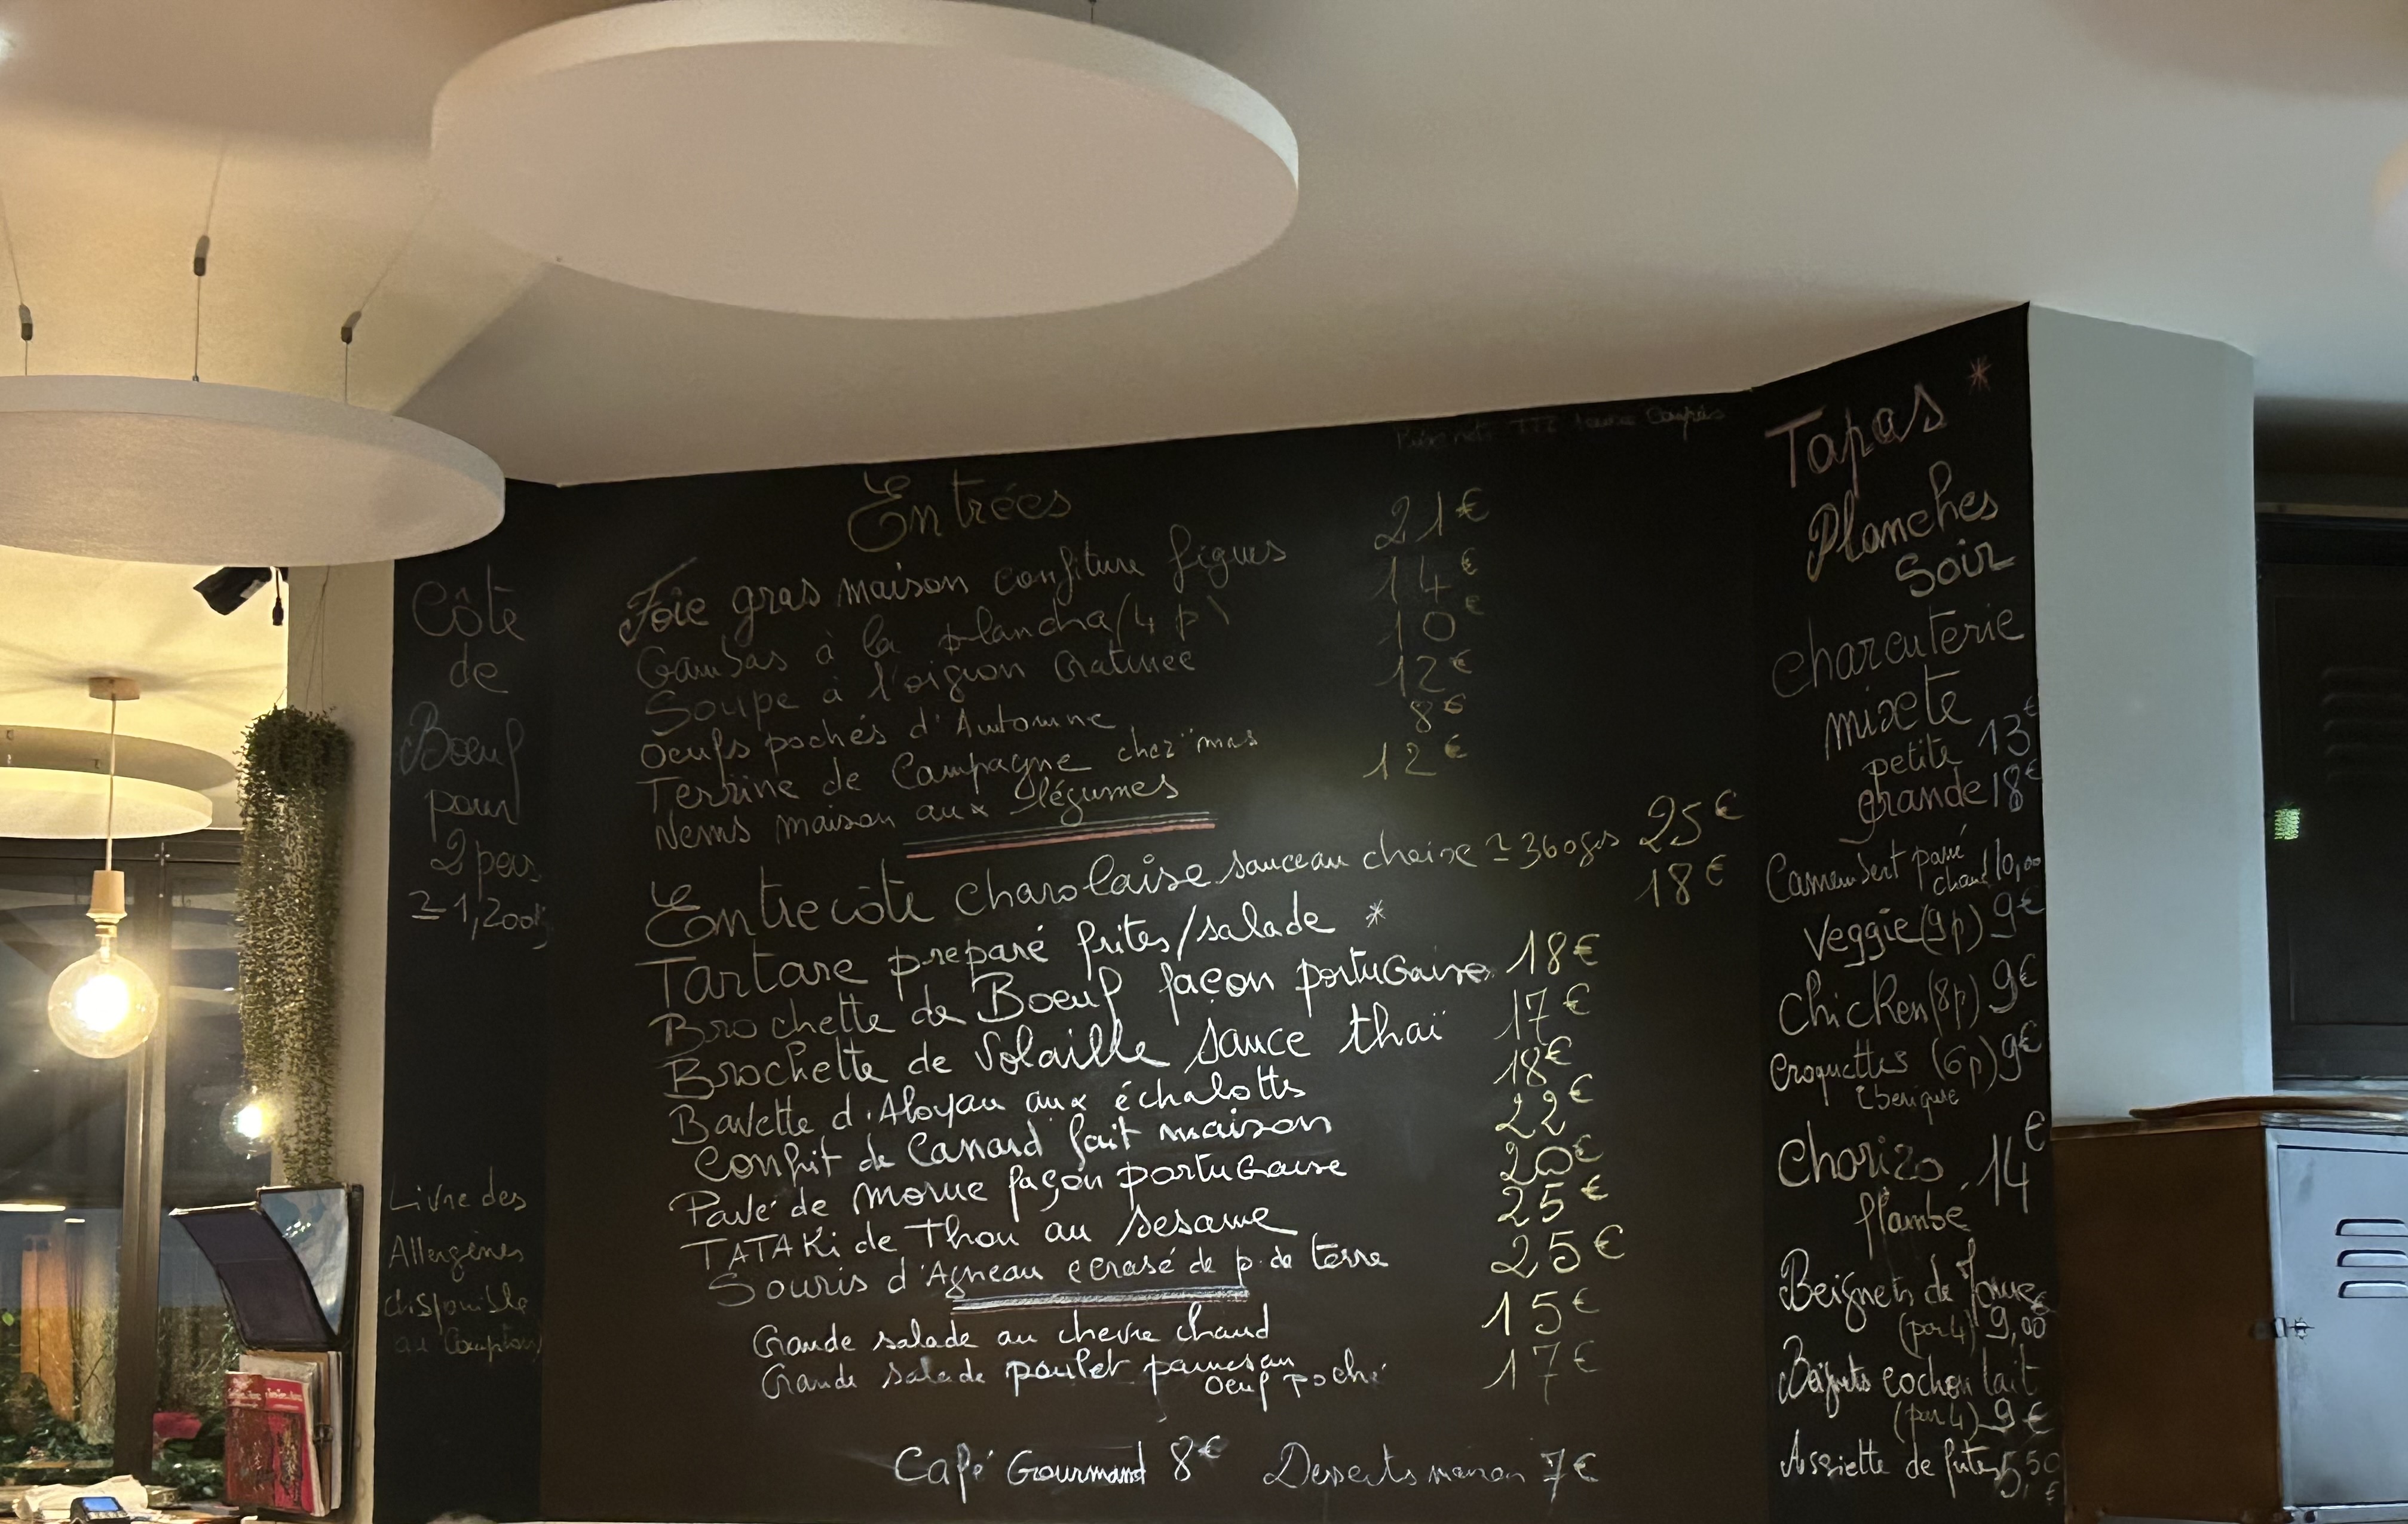 Côte
de
Boeuf
pour
2 pers
≃ 1,200
Livre des
Allergènes
disponible
au Comptoir
Entrées
Foie gras maison confiture figues 21€
Gambas à la plancha (4 p) 14€
Soupe à l'oignon Gratinée 10€
Oeufs pochés d'Automne 12€
Terrine de Campagne 8€
Nems maison aux légumes 12€
Entrecôte charolaise sauce au choix ≃ 360grs 25€
Tartare preparé frites/salade * 18€
Brochette de Boeuf façon portugaise 18€
Brochette de Volaille sauce thaï 17€
Bavette d'Aloyau aux échalottes 18€
Confit de Canard fait maison 22€
Pavé de morue façon portugaise 20€
TATAKi de Thon au Sesame 25€
Souris d'Agneau ecrasé de p. de terre 25€
Grande salade au chevre chaud 15€
Grande salade poulet parmesan 17€
oeuf poché
Café Gourmand 8€ Desserts maison 7€
Tapas *
Planches
Soir
charcuterie
mixte
petite 13€
grande 18€
Camembert pané
chaud 10,00
Veggie (9p) 9€
Chicken (8p) 9€
Croquettes (6p) 9€
iberique
Chorizo 14€
flambé
Beignets de
(par 4) 9,00€
Beignets cochon lait
(par 4) 9€
Assiette de frites 5,50€